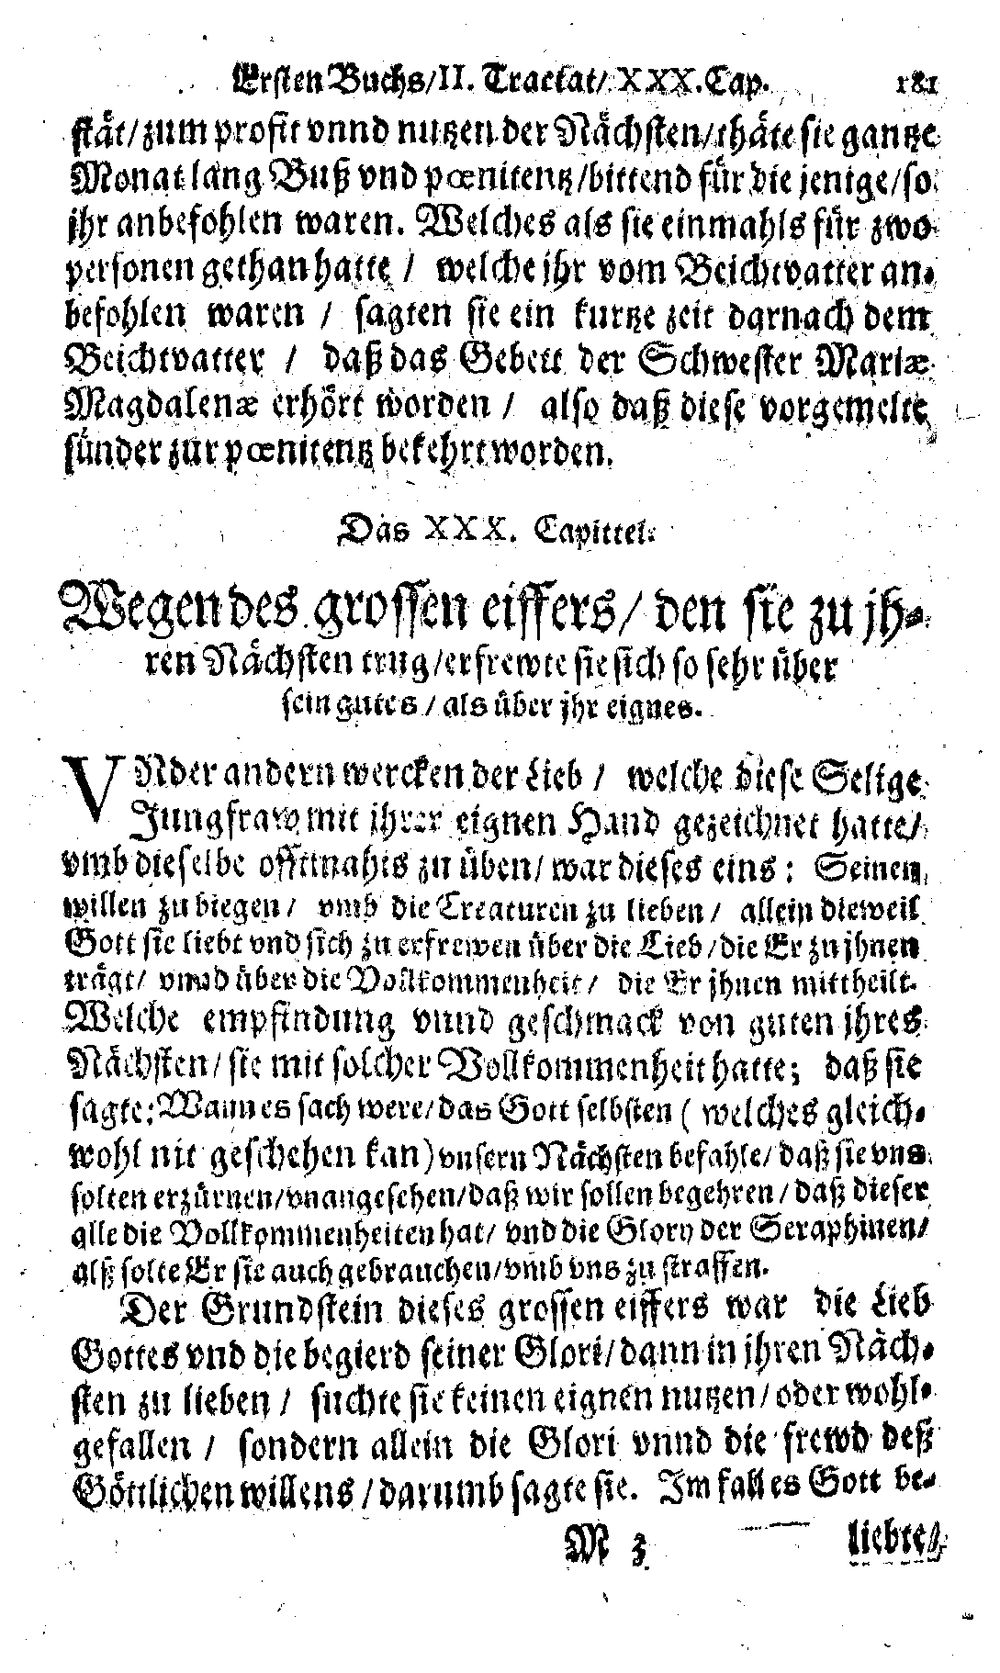 Ersten Buchs/II. Tractat/XXX.Cap. 181
stät/zum profit vnnd nutzen der Nächsten/thäte sie gantze
Monat lang Buß vnd pœnitentz/bittend für die jenige/so
jhr anbefohlen waren. Welches als sie einmahls für zwo
personen gethan hatte / welche jhr vom Beichtvatter an-
befohlen waren / sagten sie ein kurtze zeit darnach dem
Beichtvatter / daß das Gebett der Schwester Mariæ
Magdalenæ erhört worden / also daß diese vorgemelte
sünder zur pœnitentz bekehrt worden.
Das XXX. Capittel.
Wegen des grossen eiffers/ den sie zu jh-
ren Nächsten trug/erfrewte sie sich so sehr über
sein gutes/als über jhr eignes.
VNder andern wercken der Lieb / welche diese Selige
Jungfraw mit ihrer eignen Hand gezeichnet hatte/
vmb dieselbe offtmahls zu üben/war dieses eins: Seinen
willen zu biegen/ vmb die Creaturen zu lieben/ allein dieweil
Gott sie liebt vnd sich zu erfrewen über die Lieb/die Er zu jhnen
trägt/ vnnd über die Vollkommenheit/ die Er jhnen mittheilt.
Welche empfindung vnnd geschmack von guten jhres
Nächsten/sie mit solcher Vollkommenheit hatte; daß sie
sagte: Wann es sach were/das Gott selbsten (welches gleich-
wohl nit geschehen kan) vnsern Nächsten befahle/daß sie vns
solten erzürnen/vnangesehen/daß wir sollen begehren/daß dieser
alle die Vollkommenheiten hat/ vnd die Glory der Seraphinen/
alß solte Er sie auch gebrauchen/vmb vns zu straffen.
Der Grundstein dieses grossen eiffers war die Lieb
Gottes vnd die begierd seiner Glori/dann in jhren Näch-
sten zu lieben / suchte sie keinen eignen nutzen/oder wohl-
gefallen / sondern allein die Glori vnnd die frewd deß
Göttlichen willens/darumb sagte sie. Im fall es Gott be-
M 3 liebte/